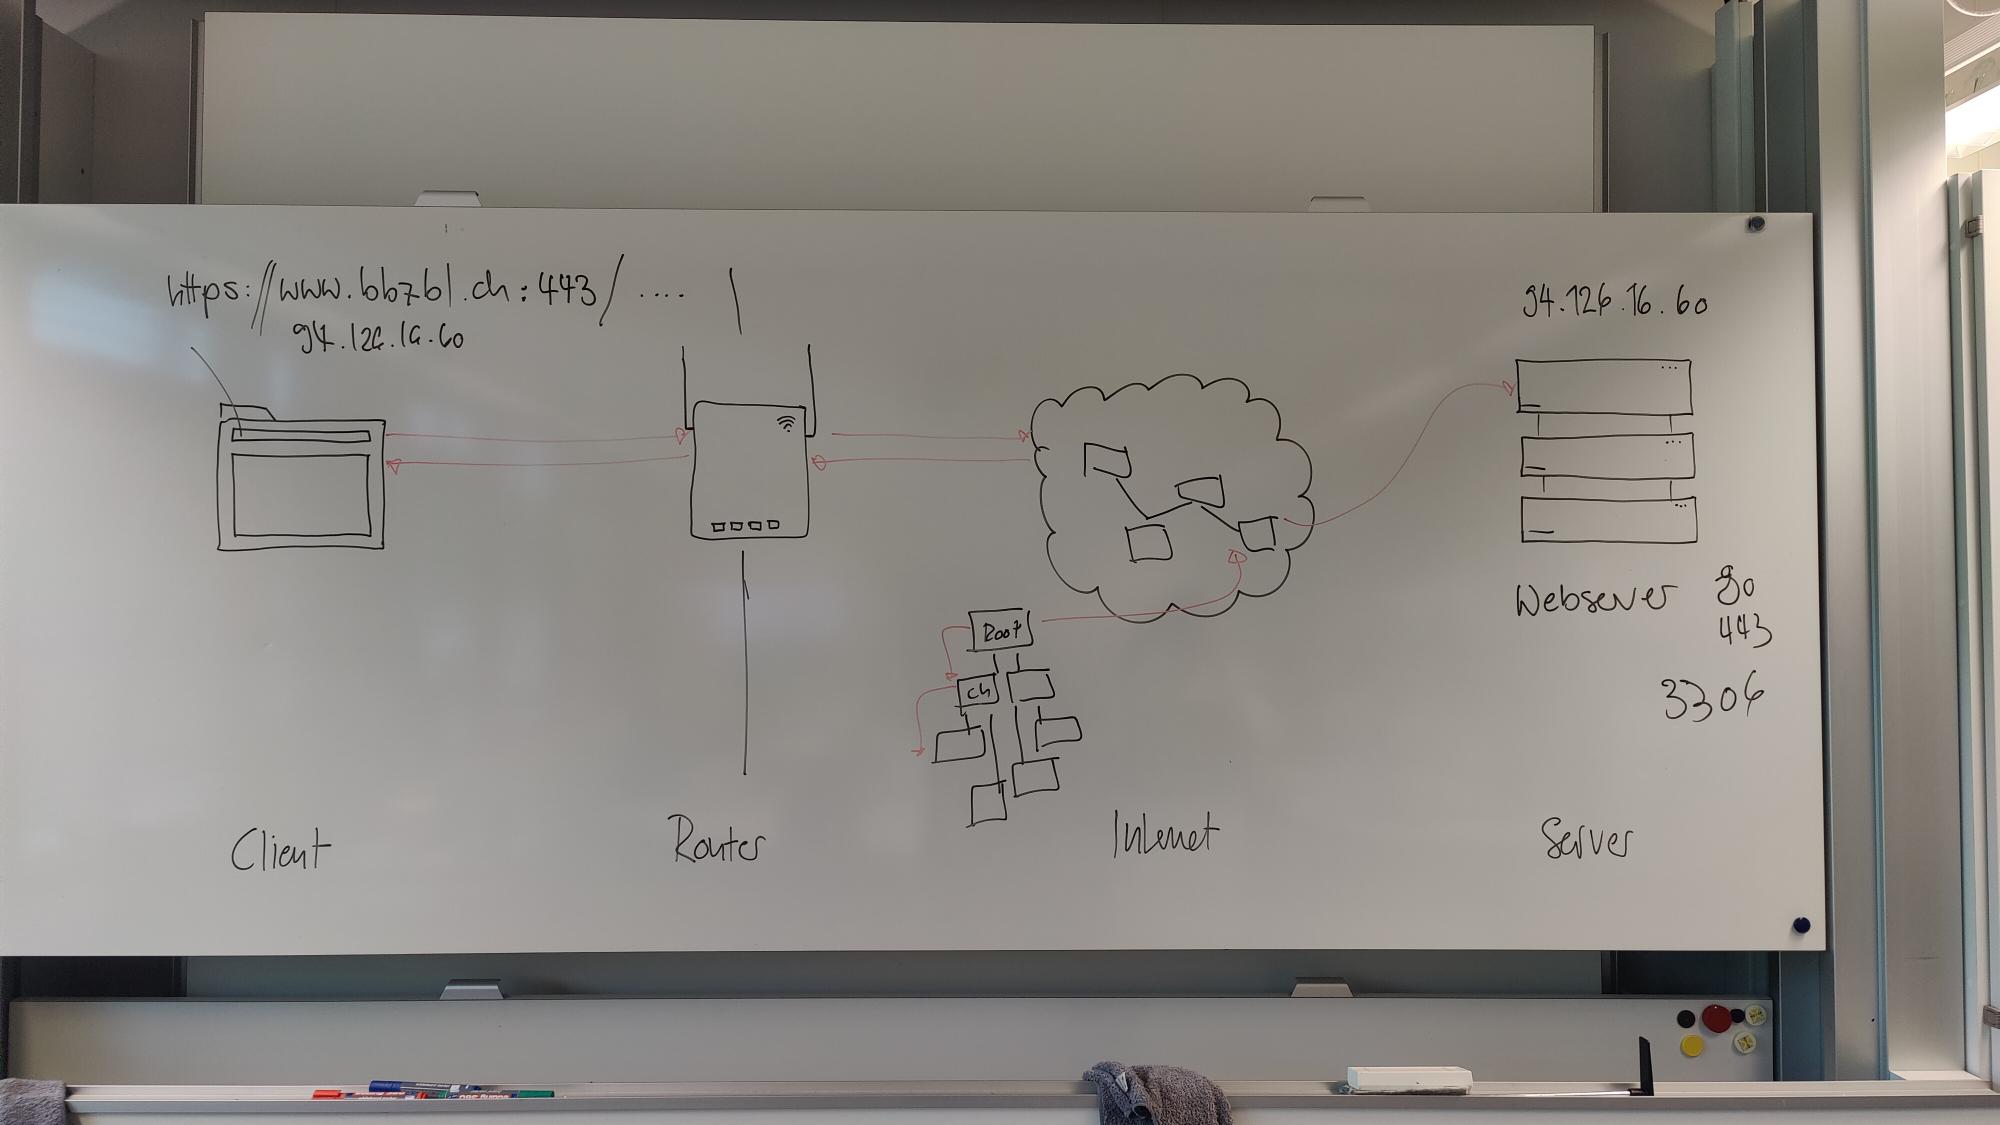 https://www.bbzbl.ch:443/ ....
94.126.16.60
94.126.16.60
Webserver 80
443
3306
Root
ch
Client
Router
Internet
Server